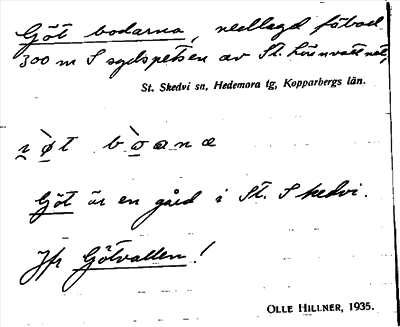 Göt bodarna, nedlagd fäbod
300 m S sydspetsen av St. Lönnvattnet,
St. Skedvi sn, Hedemora tg, Kopparbergs län.
Göt är en gård i St. Skedvi.
Jfr Götvallen!
OLLE HILLNER, 1935.